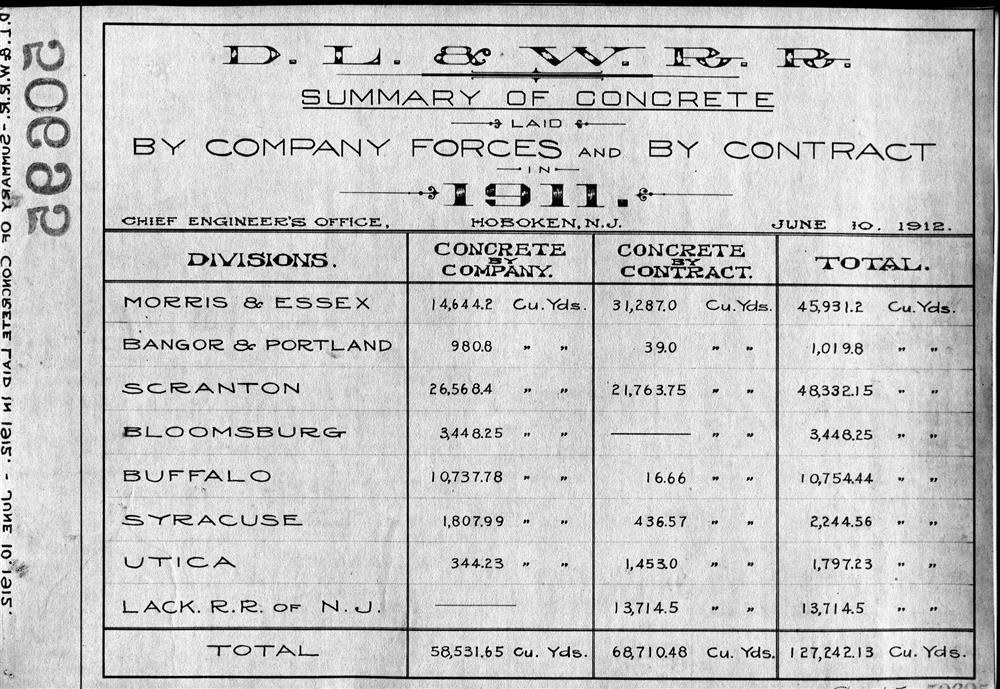 D. L. & W. R. R.
SUMMARY OF CONCRETE
LAID
BY COMPANY FORCES AND BY CONTRACT
IN
1911.
CHIEF ENGINEER'S OFFICE, HOBOKEN, N.J. JUNE 10. 1912.
DIVISIONS. CONCRETE BY COMPANY. CONCRETE BY CONTRACT. TOTAL.
MORRIS & ESSEX 14,644.2 Cu. Yds. 31,287.0 Cu. Yds. 45,931.2 Cu. Yds.
BANGOR & PORTLAND 980.8 " " 39.0 " " 1,019.8 " "
SCRANTON 26,568.4 " " 21,763.75 " " 48,332.15 " "
BLOOMSBURG 3,448.25 " " —— " " 3,448.25 " "
BUFFALO 10,737.78 " " 16.66 " " 10,754.44 " "
SYRACUSE 1,807.99 " " 436.57 " " 2,244.56 " "
UTICA 344.23 " " 1,453.0 " " 1,797.23 " "
LACK. R.R. OF N.J. —— 13,714.5 " " 13,714.5 " "
TOTAL 58,531.65 Cu. Yds. 68,710.48 Cu. Yds. 127,242.13 Cu. Yds.
D.L.& W.R.R.-SUMMARY OF CONCRETE LAID IN 1912. - JUNE 10, 1912.